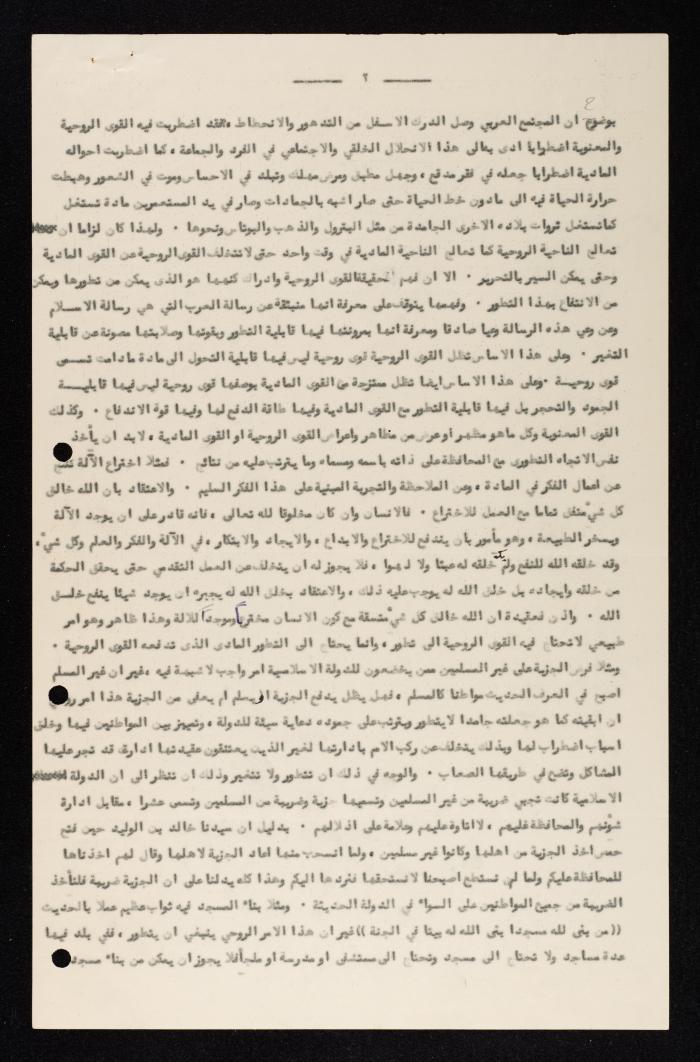 ٢
بوضوح ان المجتمع العربي وصل الدرك الاسفل من التدهور والانحطاط ، فقد اضطربت فيه القوى الروحية
والمعنوية اضطرابا ادى بعالى هذا الانحلال الخلقي والاجتماعي في الفرد والجماعة ، كما اضطربت احواله
المادية اضطرابا جعله في فقر مدقع ، وجهل مطبق ومرض مهلك وتبلد في الاحساس وموت في الشعور وهبطت
حرارة الحياة فيه الى مادون خط الحياة حتى صار اشبه بالجمادات وصار في يد المستعمرين مادة تستغل
كما تستغل ثروات بلاده الاخرى الجامدة من مثل البترول والذهب والبوتاس ونحوها ٠ ولهذا كان لزاما ان
تعالج الناحية الروحية كما تعالج الناحية المادية في وقت واحد حتى لا تتخلف القوى الروحية عن القوى المادية
وحتى يمكن السير بالتحرير ٠ الا ان فهم الحقيقة القوى الروحية وادراك كنهها هو الذى يمكن من تطورها ويمكن
من الانتفاع بهذا التطور ٠ وفهمها يتوقف على معرفة انها منبثقة عن رسالة العرب التي هي رسالة الاسلام
وعن وعي هذه الرسالة وعيا صادقا ومعرفة انها بمرونتها فيها قابلية التطور وبقوتها وصلابتها مصونة عن قابلية
التغير ٠ وعلى هذا الاساس تظل القوى الروحية قوى روحية ليس فيها قابلية التحول الى مادة ما دامت تسمى
قوى روحية ٠ وعلى هذا الاساس ايضا تظل ممتزجة مع القوى المادية بوصفها قوى روحية ليس فيها قابليـــة
الجمود والتحجر بل فيها قابلية التطور مع القوى المادية وفيها طاقة الدفع لها وفيها قوة الاندفاع ٠ وكذلك
القوى المعنوية وكل ما هو مظهر او عرض من مظاهر واعراض القوى الروحية او القوى المادية ، لا بد ان يأخذ
نفس الاتجاه التطورى مع المحافظة على ذاته باسمه ومسماه وما يترتب عليه من نتائج ٠ فمثلا اختراع الآلة نتج
عن اعمال الفكر في المادة ، وعن الملاحظة والتجربة المبنية على هذا الفكر السليم ٠ والاعتقاد بان الله خالق
كل شيء متفق تماما مع العمل للاختراع ٠ فالانسان وان كان مخلوقا لله تعالى ، فانه قادر على ان يوجد الآلة
ويسخر الطبيعة ، وهو مأمور بان يندفع للاختراع والابداع ، والايجاد والابتكار ، في الآلة والفكر والعلم وكل شيء ،
وقد خلقه الله للنفع ولم يك خلقه له عبثا ولا لهوا ، فلا يجوز له ان يتخلف عن العمل التقدمي حتى يحقق الحكمة
من خلقه وايجاده بل خلق الله له يوجب عليه ذلك ، والاعتقاد بخلق الله له يجبره ان يوجد شيئا ينفع خلق
الله ٠ واذن فعقيدة ان الله خالق كل شيء متسقة مع كون الانسان مخترعاً وموجداً للآلة وهذا ظاهر وهو امر
طبيعي لا تحتاج فيه القوى الروحية الى تطور ، وانما يحتاج الى التطور المادى الذى تدفعه القوى الروحية ٠
ومثلا فرض الجزية على غير المسلمين ممن يخضعون للدولة الاسلامية امر واجب لا شبهة فيه ، غير ان غير المسلم
اصبح في العرف الحديث مواطنا كالمسلم ، فهل يظل يدفع الجزية او يسلم ام يعفى من الجزية هذا امر روحي
ان ابقيته كما هو جعلته جامدا لا يتطور ويترتب على جموده دعاية سيئة للدولة ، وتمييز بين المواطنين فيها وخلق
اسباب اضطراب لها وبذلك يتخلف عن ركب الامم بادارتها لغير الذين يعتنقون عقيدتها ادارة قد تجر عليها
المشاكل وتضع في طريقها الصعاب ٠ والوجه في ذلك ان تتطور ولا تتغير وذلك ان تنظر الى ان الدولة
الاسلامية كانت تجبي ضريبة من غير المسلمين وتسميها جزية وضريبة من المسلمين وتسمى عشرا ، مقابل ادارة
شؤنهم والمحافظة عليهم ، لا اتاوة عليهم وعلامة على اذلالهم ٠ بدليل ان سيدنا خالد بن الوليد حين فتح
حمص اخذ الجزية من اهلها وكانوا غير مسلمين ، ولما انسحب منها اعاد الجزية لاهلها وقال لهم اخذناها
للمحافظة عليكم ولما لم نستطع اصبحنا لا نستحقها فنردها اليكم وهذا كله يدلنا على ان الجزية ضريبة فلتأخذ
الضريبة من جميع المواطنين على السواء في الدولة الحديثة ٠ ومثلا بناء المسجد فيه ثواب عظيم عملا بالحديث
(( من بنى لله مسجدا بنى الله له بيتا في الجنة )) غير ان هذا الامر الروحي ينبغي ان يتطور ، ففي بلد فيها
عدة مساجد ولا تحتاج الى مسجد وتحتاج الى مستشفى او مدرسة او ملجأ فلا يجوز ان يمكن من بناء مسجد